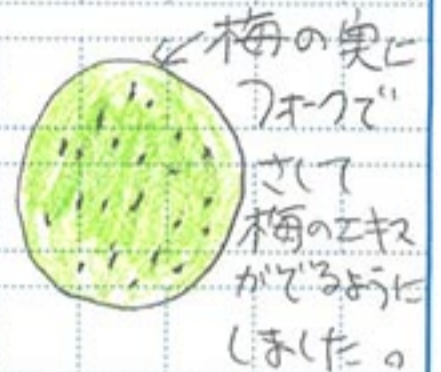 梅の実に
フォークで
さして
梅のエキス
がでるように
しました。